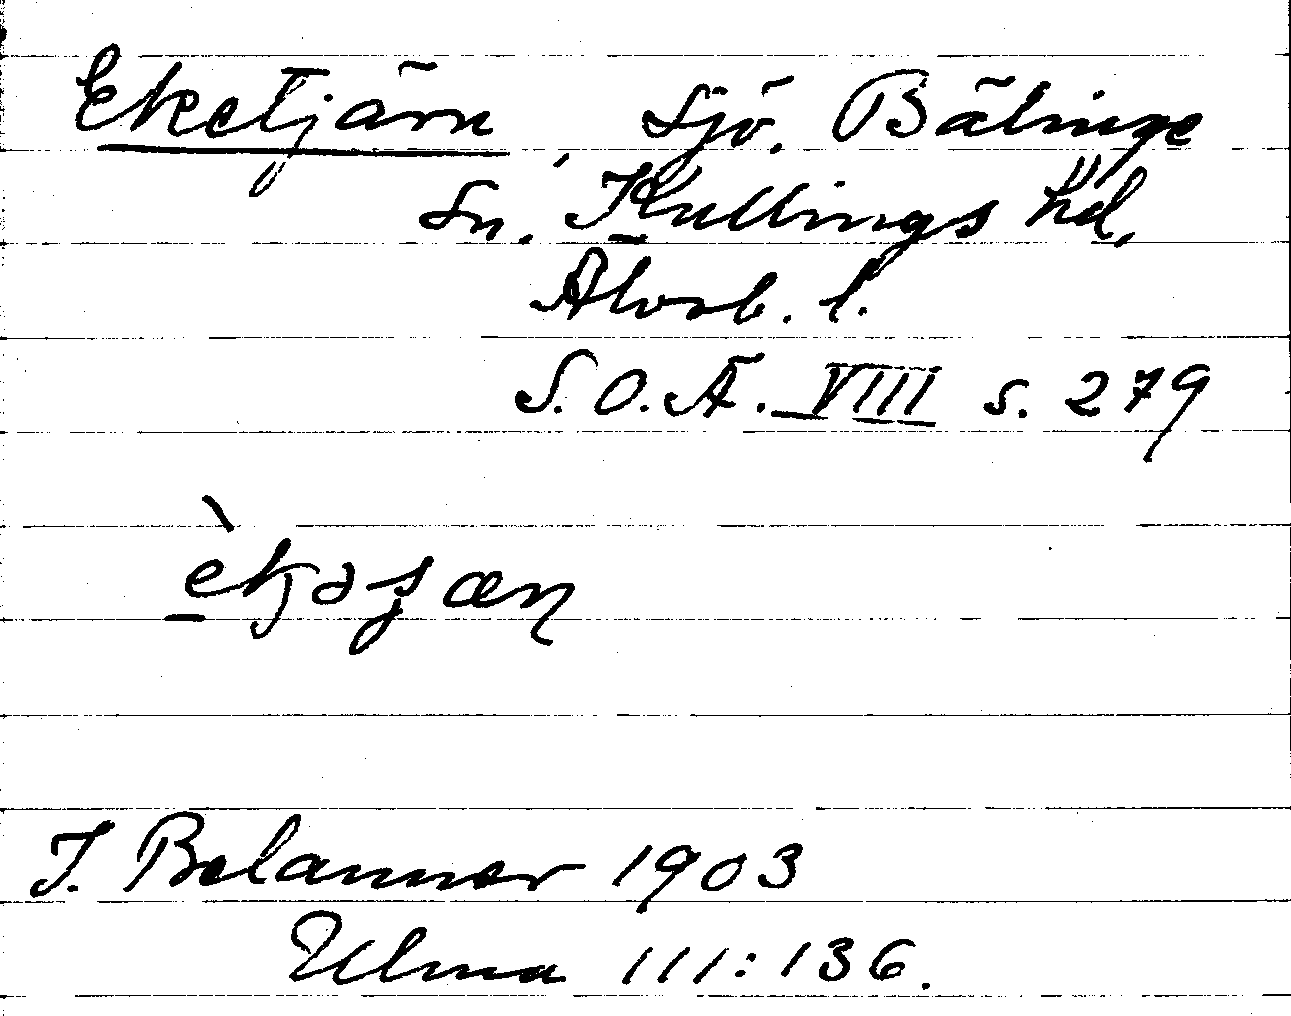 Eketjärn, Sjö. Bälinge
Sn. Kullings hd,
Älvsb. l.
S.O.Ä. VIII s. 279
J. Belanner 1903
Ulma 111:136.